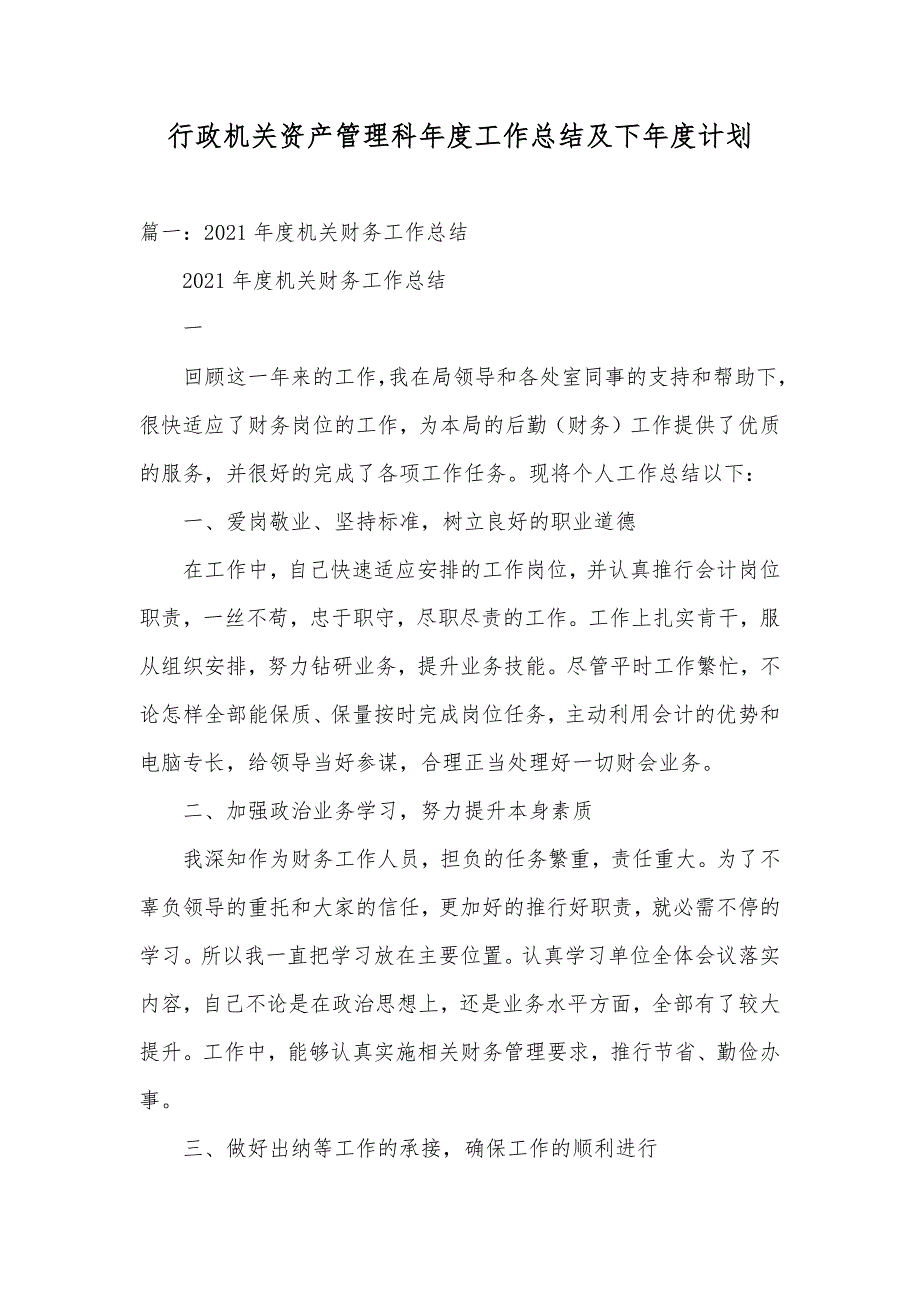 行政机关资产管理科年度工作总结及下年度计划
篇一：2021 年度机关财务工作总结
2021 年度机关财务工作总结
一
回顾这一年来的工作，我在局领导和各处室同事的支持和帮助下，
很快适应了财务岗位的工作，为本局的后勤（财务）工作提供了优质
的服务，并很好的完成了各项工作任务。现将个人工作总结以下：
一、爱岗敬业、坚持标准，树立良好的职业道德
在工作中，自己快速适应安排的工作岗位，并认真推行会计岗位
职责，一丝不苟，忠于职守，尽职尽责的工作。工作上扎实肯干，服
从组织安排，努力钻研业务，提升业务技能。尽管平时工作繁忙，不
论怎样全部能保质、保量按时完成岗位任务，主动利用会计的优势和
电脑专长，给领导当好参谋，合理正当处理好一切财会业务。
二、加强政治业务学习，努力提升本身素质
我深知作为财务工作人员，担负的任务繁重，责任重大。为了不
辜负领导的重托和大家的信任，更加好的推行好职责，就必需不停的
学习。所以我一直把学习放在主要位置。认真学习单位全体会议落实
内容，自己不论是在政治思想上，还是业务水平方面，全部有了较大
提升。工作中，能够认真实施相关财务管理要求，推行节省、勤俭办
事。
三、做好出纳等工作的承接，确保工作的顺利进行